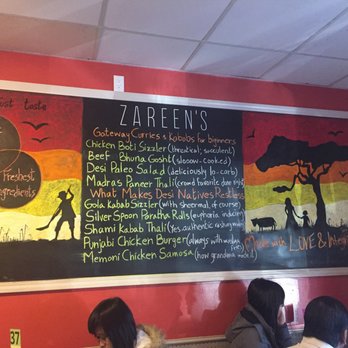 ZAREEN'S
just taste
Gateway Curries & Kabobs for beginners
Chicken Boti Sizzler (theatrical, succulent)
Beef Bhuna Gosht (slooow-cooked)
Desi Paleo Salad (deliciously lo-carb)
Madras Paneer Thali (crowd favorite
Freshest
Ingredients
What Makes Desi Natives Restless
Gola Kabab Sizzler (with sheermal of course)
Silver Spoon Paratha Rolls (euphoria inducing)
Shami Kabab Thali (yes, authentic
Punjabi Chicken Burger (always with
Memoni Chicken Samosa (how grandma made it)
Made with LOVE &
37